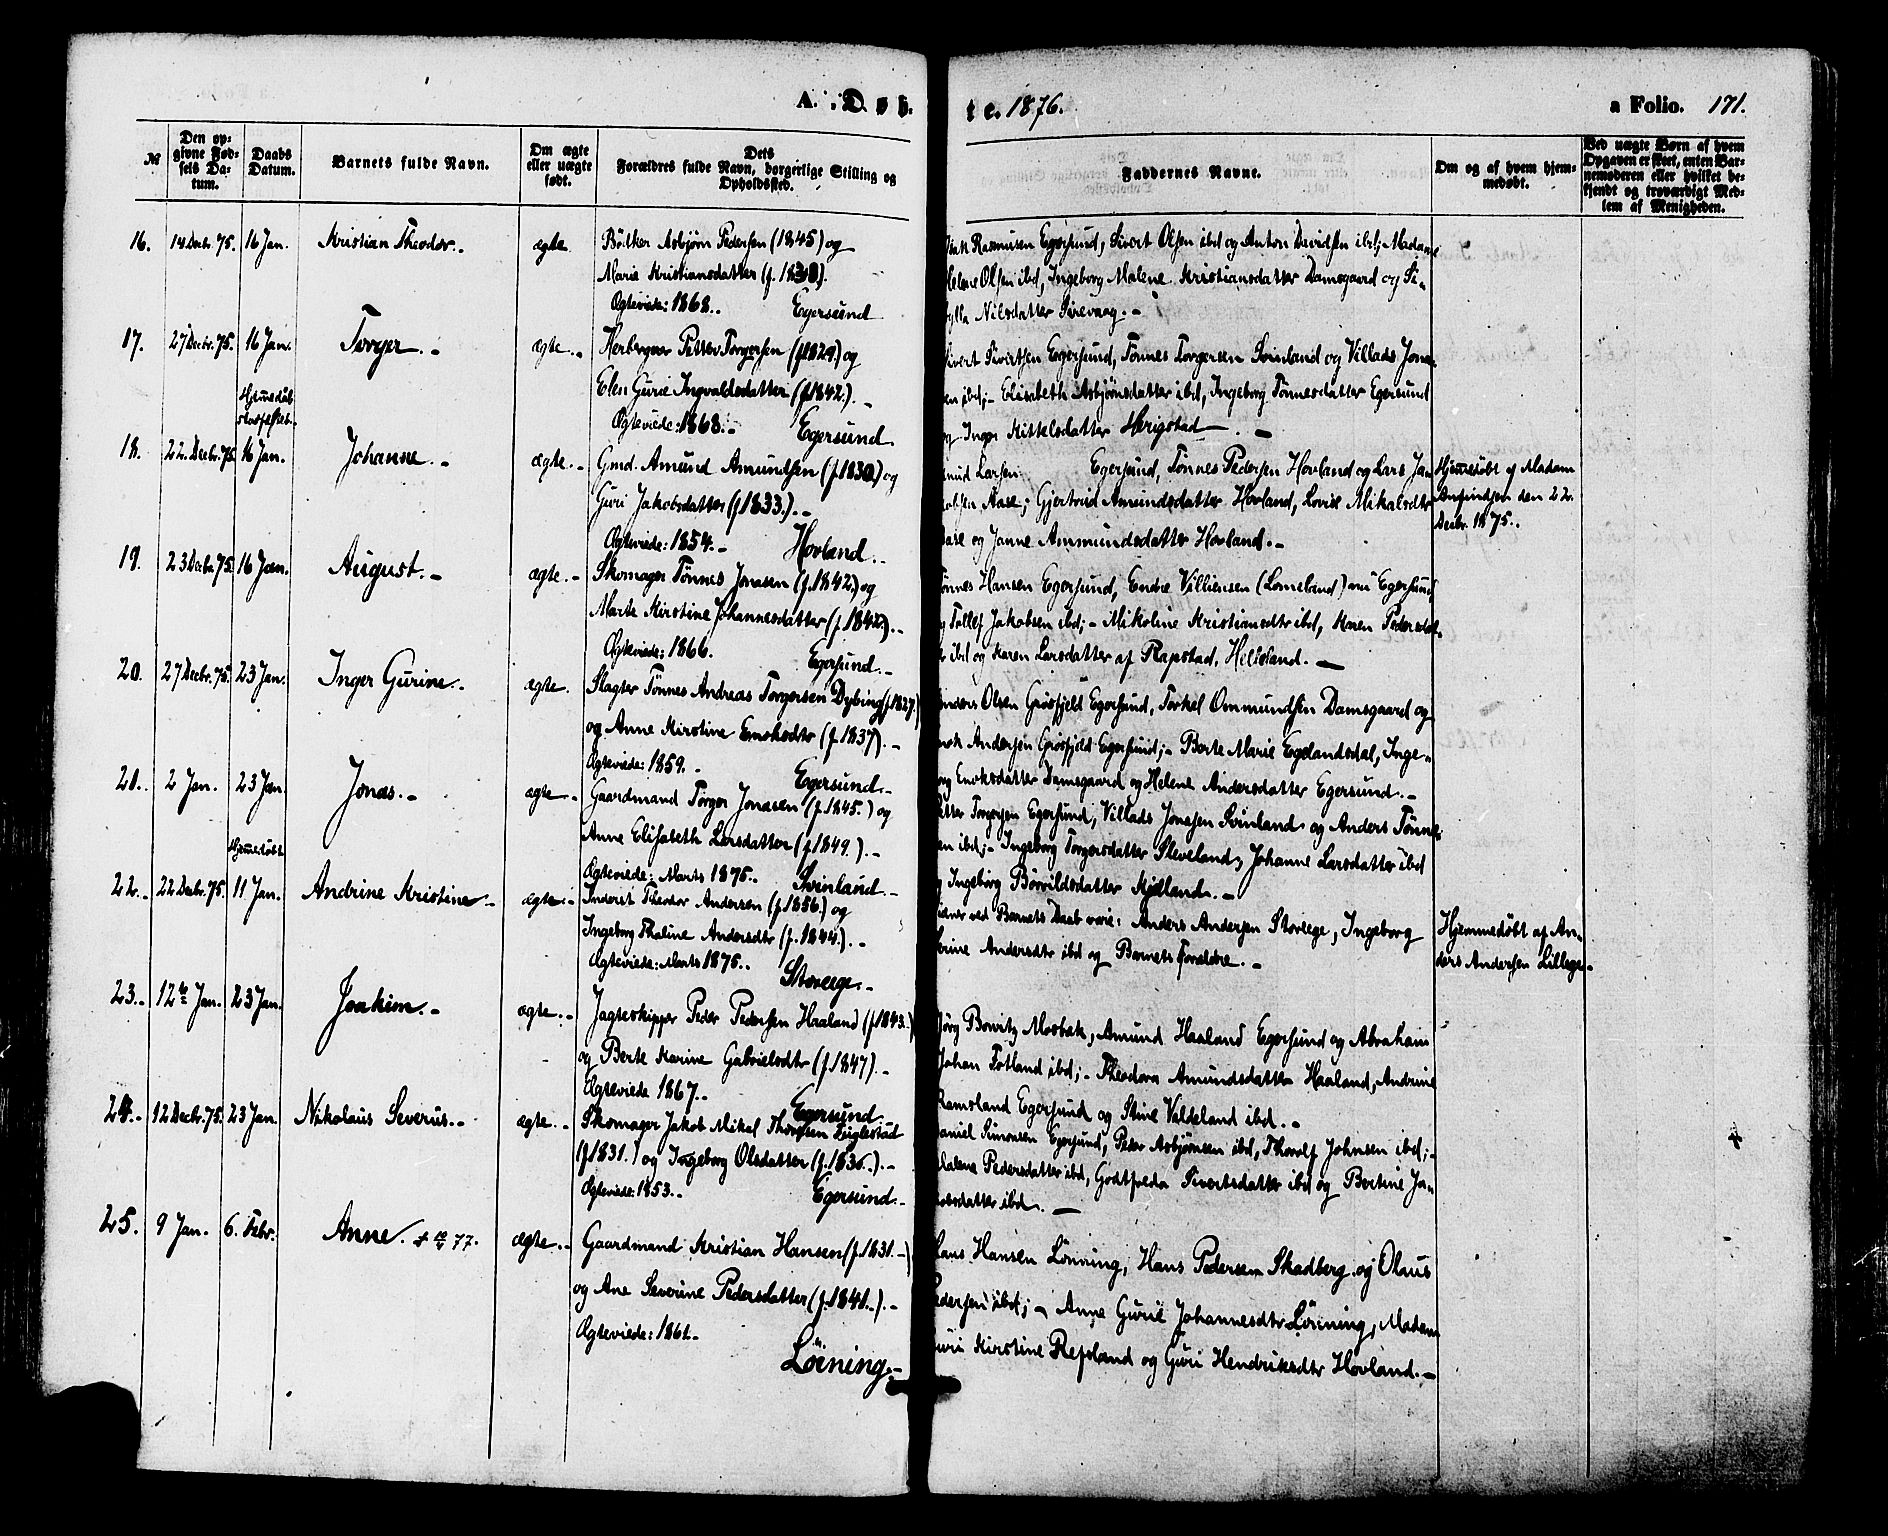 A. Døb-
te. 1876.
a Folio. 171.
№
Den op-
givne Fød-
sels Da-
tum.
Daabs
Datum.
Barnets fulde Navn.
Om ægte
eller uægte
født.
Dets
Forældres fulde Navn, borgerlige Stilling og
Opholdssted.
Faddernes Navne.
Om og af hvem hjem-
medøbt.
Ved uægte Børn af hvem
Opgaven er skeet, enten Bar-
nemoderen eller hvilket be-
kjendt og troværdigt Med-
lem af Menigheden.
16. 14 Decbr. 75. 16 Jan. Kristian Theodor.- ægte
Bödker Asbjörn Pedersen (1845) og
Marie Kristiansdatter (f. 1838).
Ægteviede: 1868.. Egersund
Rasmusen Egersund, Sivert Olsen ibd og Anton Davidsen ibd;- Madame
Helene Olsen ibd, Ingeborg Malene Kristiansdatter Damsgaard og Si-
bylla Nilsdatter Sirevaag.-
17. 27 Decbr. 75. 16 Jan. Torger.- ægte.-
Petter Torgersen (f. 1829) og
Elen Gurie Ingvaldsdatter (f. 1842.).-
Ægteviede: 1868.- Egersund
Sivert Sivertsen Egersund, Tönnes Torgersen Svinland og Villads Jona-
sen ibd;- Elisabeth Asbjörnsdatter ibd, Ingeborg Tönnesdatter Egersund
og Inger Kittelsdatter Herigstad.-
18. 22. Decbr. 75 Hjemmedöbt
stadfestet. 16 Jan. Johanne.- ægte.-
Gmd. Amund Amundsen (f. 1830.) og
Guri Jakobsdatter (f. 1833.).-
Ægteviede: 1854.- Hovland.-
Larsen Egersund, Tönnes Pedersen Hovland og Lars Ja-
kobsen Aase; Gjertrud Amundsdatter Hovland, Lovise Mikalsdtr
Aase og Janne Ammundsdatter Hovland.-
Hjemmedöbt af Madam
Anfindsen den 22.
Decbr. 1875..
19. 23 Decbr. 75. 16 Jan. August.- ægte.-
Skomager Tönnes Jonasen (f. 1842.) og
Marte Kirstine Johannesdatter (f. 1842).-
Ægteviede: 1866. Egersund.-
Tönnes Hansen Egersund, Endre Villiensen (Lomeland) nu Egersund
og Tollef Jakobsen ibd;- Mikoline Kristiansdtr ibd, Karen Pedersdat-
ter ibd og Karen Larsdatter af Rapstad, Helleland.-
20. 27 Decbr. 75. 23 Jan. Inger Gurine.- ægte.
Slagter Tönnes Andreas Torgersen Dybing (f. 1827.)
og Anne Kirstine Enoksdtr (f. 1837).-
Ægteviede: 1859.- Egersund.-
Anders Olsen Grösfjeld Egersund, Torkel Ommundsen Damsgaard og
Enok Andersen Grösfjeld Egersund;- Berte Marie Egelandsdal, Inge-
borg Enoksdatter Damsgaard og Helene Andersdatter Egersund.-
21.. 2 Jan. 23 Jan Jonas.- ægte.-
Gaardmand Torger Jonasen (f. 1845.) og
Anne Elisabeth Larsdatter (f. 1849.).-
Ægteviede: Marts 1875.. Svinland.-
Petter Torgersen Egersund, Villads Jonasen Svinland og Anders Tönne-
sen ibd;- Ingeborg Torgersdatter Sleveland, Johanne Larsdatter ibd
og Ingeborg Börvildsdatter Kjelland.-
22.. 22 Decbr. 75 Hjemmedöbt
11 Jan. Andrine Kristine.- ægte.-
Inderst Theodor Andersen (f. 1856.) og
Ingeborg Thaline Andersdtr (f. 1844.).-
Ægteviede: Marts 1875.. Storeege.-
Vidner ved Barnets Daab vare: Anders Andersen Storeege, Ingeborg
Serine Andersdtr ibd og Barnets Forældre.-
Hjemmedöbt af An-
ders Andersen Lilleege.-
23.. 12te Jan. 23 Jan. Joakim.- ægte.-
Jagteskipper Peder Pedersen Haaland (f. 1843.)
og Berte Karine Gabrielsdtr (f. 1847).-
Ægteviede 1867.. Egersund
Jörg Bowitz Mosbek, Amund Haaland Egersund og Abraham
Johan Fotland ibd;- Theodora Amundsdatter Haaland, Andrine
Ramsland Egersund og Stine Valdeland ibd.-
24.. 12 Decbr. 75. 23 Jan. Nikolaus Severus.- ægte.-
Skomager Jakob Mikal Thorsen Fuglestad
(f. 1831.) og Ingeborg Olsdatter (f. 1836.).-
Ægteviede: 1853.. Egersund.-
Daniel Simonsen Egersund, Peder Asbjörnsen ibd, Thorolf Johnsen ibd;-
Malene Pedersdatter ibd, Godtfreda Sivertsdatter ibd og Bertine Ja-
kobsdatter ibd.-
25. 9 Jan. 6. Febr. Anne. ægte.-
Gaardmand Kristian Hansen (f. 1831.-)
og Ane Severine Pedersdatter (f. 1841.-).-
Ægteviede: 1861.- Löining.-
Hans Hansen Löining, Hans Pedersen Skadberg og Olaus
Pedersen ibd;- Anne Gurie Johannesdtr Löining, Madam
Guri Kirstine Refsland og Guri Hendriksdtr Hovland.-